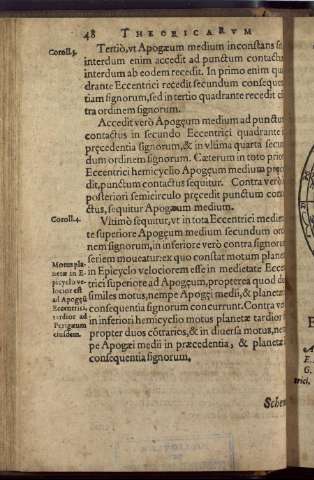 48 THEORICARVM
Coroll.3.
Tertiò, vt Apogæum medium inconstans
interdum enim accedit ad punctum contactus
interdum ab eodem recedit. In primo enim qua
drante Eccentrici recedit secundum consequen
tiam signorum, sed in tertio quadrante recedit cō
tra ordinem signorum.
Accedit verò Apogęum medium ad punctum
contactus in secundo Eccentrici quadrante in
pręcedentia signorum, & in vltima quarta secun
dum ordinem signorum. Cæterum in toto priori
Eccentrici hemicyclio Apogęum medium pręce
dit, punctum contactus sequitur. Contra verò
posteriori semicirculo pręcedit punctum conta
ctus, sequitur Apogæum medium.
Coroll.4.
Vltimò sequitur, vt in tota Eccentrici medieta
te superiore Apogæum medium secundum ordi
nem signorum, in inferiore verò contra signorum
seriem moueatur: ex quo constat motum planetæ
in Epicyclo velociorem esse in medietate Eccen
trici superiore ad Apogęum, propterea quod duo
similes motus, nempe Apogęi medij, & planetæ
consequentia signorum concurrunt. Contra verò
in inferiori hemicyclio motus planetæ tardior
propter duos cōtrarios, & in diuersa motus, nem
pe Apogæi medii in præcedentia, & planetæ
consequentia signorum.
Motus pla-
netæ in E-
picyclo ve-
locior est
ad Apogęū
Eccentrici,
tardior ad
Perigæum
eiusdem.
Schem